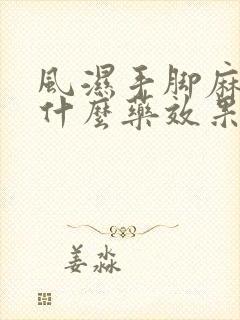 風濕手脚麻
什麽藥效果
姜淼